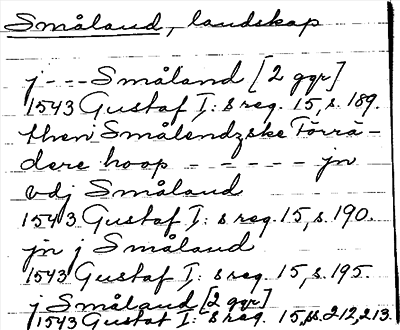 Småland, landskap
j - - - Småland [2 ggr]
1543 Gustaf I:s reg. 15, s. 189.
then Smålendzske Förrä-
dere hoop - - - - - - jn
vdj Småland
1543 Gustaf I:s reg. 15, s. 190.
jn j Småland
1543 Gustaf I:s reg. 15, s. 195.
j Småland [2 ggr]
1543 Gustaf I:s reg. 15, ss. 212, 213.